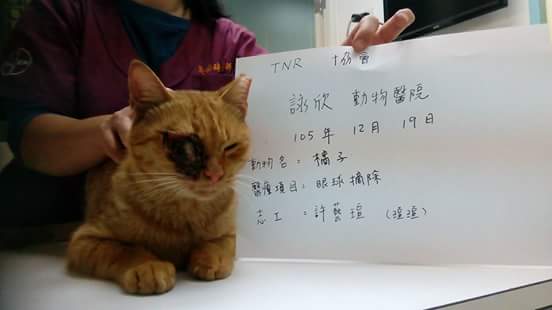 TNR 協會
詠欣 動物醫院
105年 12月 19日
動物名：橘子
醫療項目：眼球摘除
志工 ：許藝瑄 (瑄瑄)